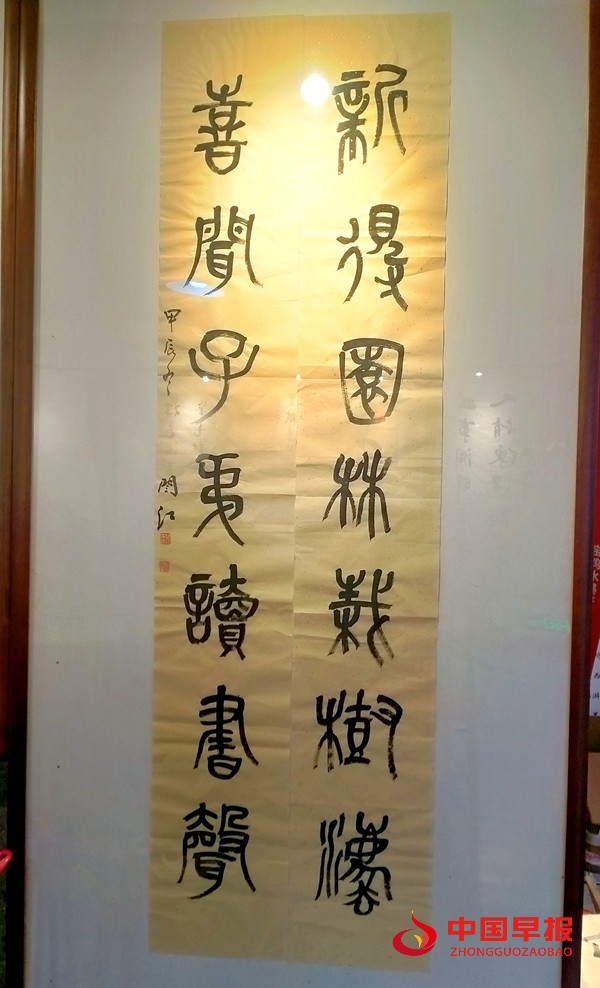 新得園林栽樹灋
喜聞子弟讀書聲
甲辰冬
中国早报
ZHONGGUOZAOBAO